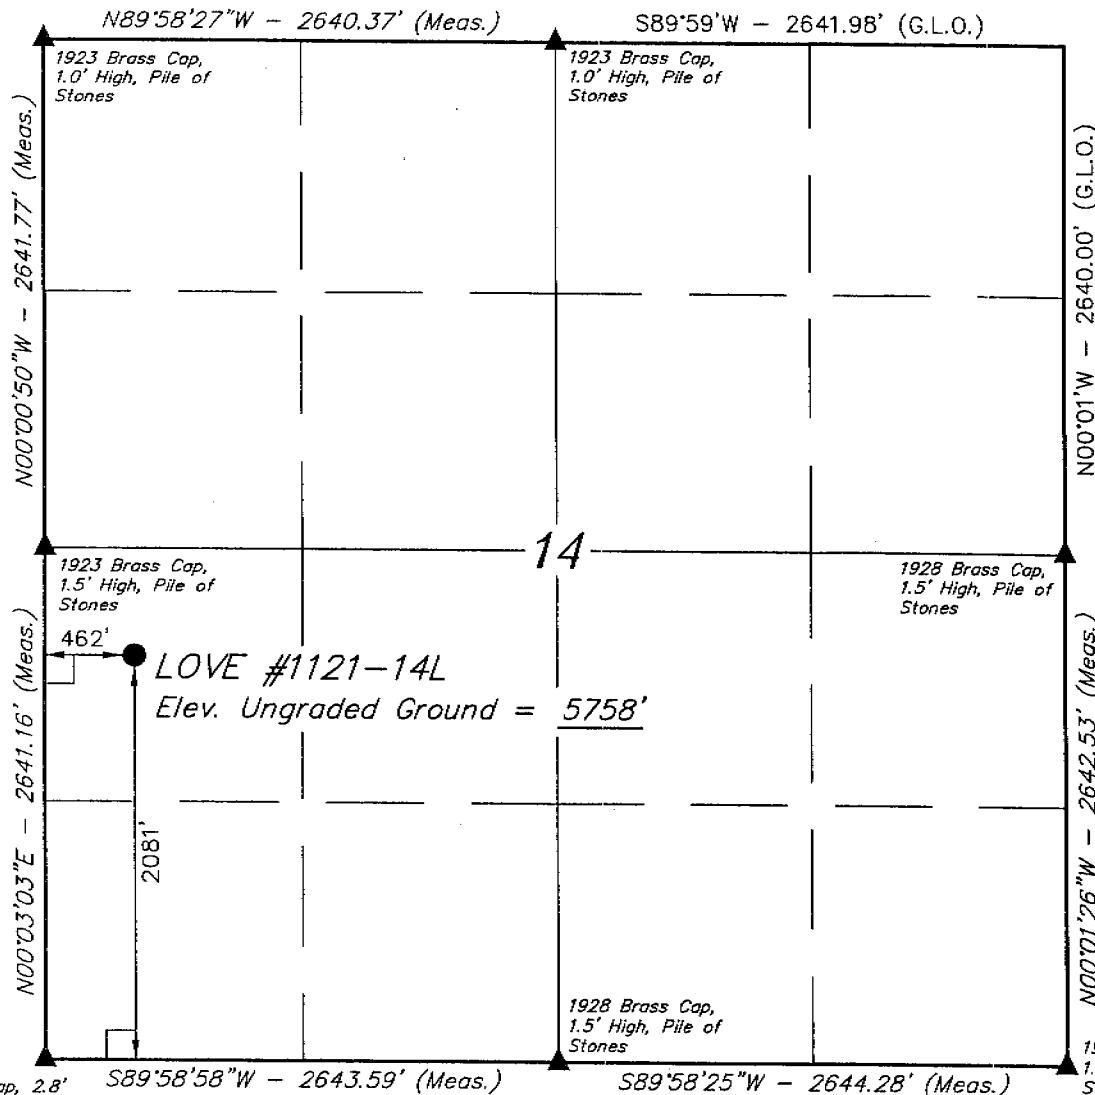 N89°58'27"W - 2640.37' (Meas.)
S89°59'W - 2641.98' (G.L.O.)
1923 Brass Cap,
1.0' High, Pile of
Stones
1923 Brass Cap,
1.0' High, Pile of
Stones
N00°00'50"W - 2641.77' (Meas.)
N00°01'W - 2640.00' (G.L.O.)
14
1923 Brass Cap,
1.5' High, Pile of
Stones
1928 Brass Cap,
1.5' High, Pile of
Stones
462'
LOVE #1121-14L
Elev. Ungraded Ground = 5758'
N00°03'03"E - 2641.16' (Meas.)
2081'
N00°01'26"W - 2642.53' (Meas.)
1928 Brass Cap,
1.5' High, Pile of
Stones
ap, 2.8'
S89°58'58"W - 2643.59' (Meas.)
S89°58'25"W - 2644.28' (Meas.)
19
1.
S